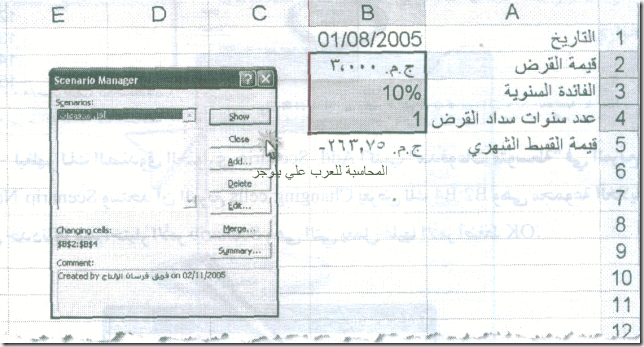 E D C B A
1 التاريخ 01/08/2005
2 قيمة القرض ج.م. ٣,٠٠٠
3 الفائدة السنوية 10%
4 عدد سنوات سداد القرض 1
5 قيمة القسط الشهري ج.م. ٢٦٣,٧٥-
6
7
8
9
10
11
12
المحاسبة للعرب علي بلوجر
Scenario Manager
Scenarios:
أقل مدفوعات
Show
Close
Add...
Delete
Edit...
Merge...
Summary...
Changing cells:
$B$2:$B$4
Comment:
Created by فريق فرسان الإنتاج on 02/11/2005